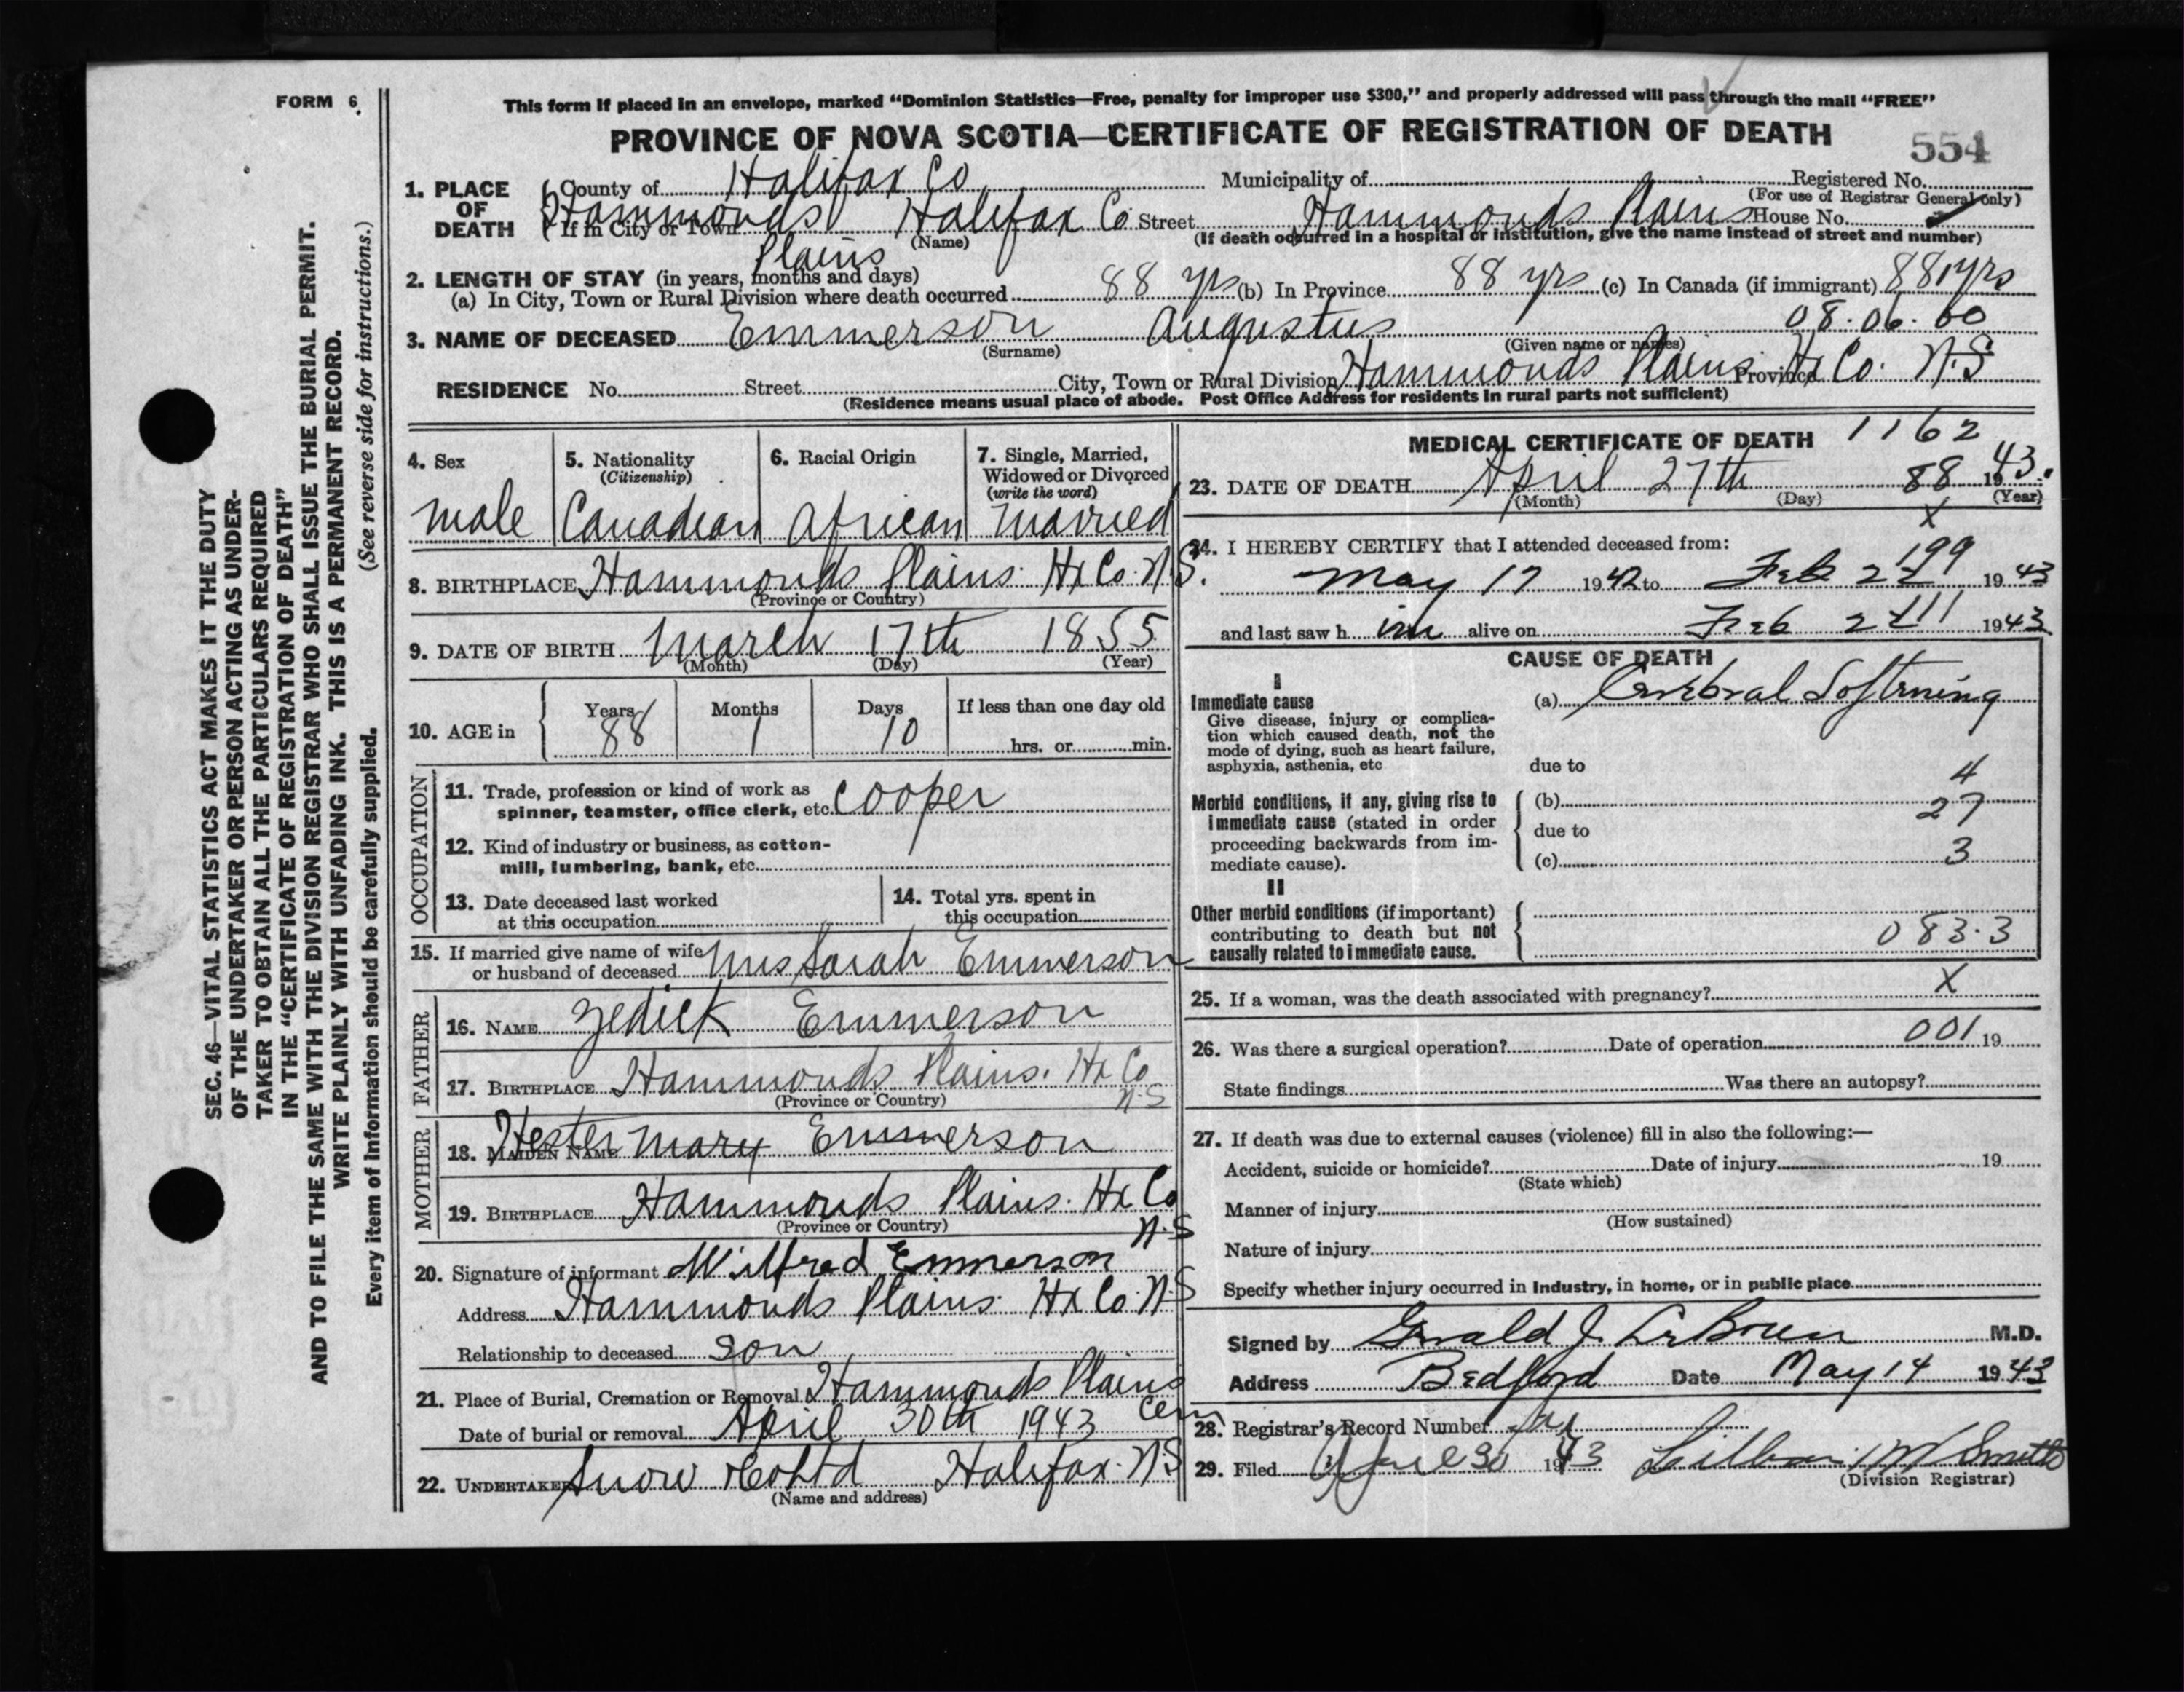 FORM 6
This form if placed in an envelope, marked “Dominion Statistics—Free, penalty for improper use $300,” and properly addressed will pass through the mail “FREE”
PROVINCE OF NOVA SCOTIA—CERTIFICATE OF REGISTRATION OF DEATH
554
1. PLACE OF DEATH
County of Halifax Co Municipality of Registered No.
(For use of Registrar General only)
If in City or Town Hammonds Plains Halifax Co Street Hammonds Plains House No.
(Name)
(If death occurred in a hospital or institution, give the name instead of street and number)
2. LENGTH OF STAY (in years, months and days)
(a) In City, Town or Rural Division where death occurred 88 yrs (b) In Province 88 yrs (c) In Canada (if immigrant) 88 yrs
08.06.60
3. NAME OF DECEASED Emmerson Augustus
(Surname) (Given name or names)
RESIDENCE No. Street City, Town or Rural Division Hammonds Plains Province Hx Co. N.S
(Residence means usual place of abode. Post Office Address for residents in rural parts not sufficient)
4. Sex
male
5. Nationality
(Citizenship)
Canadian
6. Racial Origin
African
7. Single, Married,
Widowed or Divorced
(write the word)
Married
8. BIRTHPLACE Hammonds Plains Hx Co. N.S.
(Province or Country)
9. DATE OF BIRTH March 17th 1855
(Month) (Day) (Year)
10. AGE in Years Months Days If less than one day old
88 1 10 hrs. or min.
OCCUPATION
11. Trade, profession or kind of work as
spinner, teamster, office clerk, etc. Cooper
12. Kind of industry or business, as cotton-
mill, lumbering, bank, etc.
13. Date deceased last worked
at this occupation
14. Total yrs. spent in
this occupation
15. If married give name of wife
or husband of deceased Mrs Sarah Emmerson
FATHER
16. NAME Zedick Emmerson
17. BIRTHPLACE Hammonds Plains. Hx Co
(Province or Country) N.S
MOTHER
18. MAIDEN NAME Hester Mary Emmerson
19. BIRTHPLACE Hammonds Plains. Hx Co
(Province or Country) N.S
20. Signature of informant Wilfred Emmerson
Address Hammonds Plains Hx Co. N.S
Relationship to deceased son
21. Place of Burial, Cremation or Removal Hammonds Plains
Cem
Date of burial or removal April 30th 1943
22. UNDERTAKER Snow & Co Ltd Halifax. N.S
(Name and address)
MEDICAL CERTIFICATE OF DEATH 1162
23. DATE OF DEATH April 27th 88 1943.
(Month) (Day) (Year)
X
24. I HEREBY CERTIFY that I attended deceased from:
199
May 17 1942 to Feb 2 1943
and last saw h im alive on Feb 2 1943
CAUSE OF DEATH
I
Immediate cause
Give disease, injury or complica-
tion which caused death, not the
mode of dying, such as heart failure,
asphyxia, asthenia, etc
(a) Cerebral Softening
due to
4
Morbid conditions, if any, giving rise to
immediate cause (stated in order
proceeding backwards from im-
mediate cause).
(b)
27
due to
(c) 3
II
Other morbid conditions (if important)
contributing to death but not
causally related to immediate cause.
083.3
25. If a woman, was the death associated with pregnancy? X
26. Was there a surgical operation? Date of operation 001 19
State findings Was there an autopsy?
27. If death was due to external causes (violence) fill in also the following:—
Accident, suicide or homicide? Date of injury 19
(State which)
Manner of injury
(How sustained)
Nature of injury
Specify whether injury occurred in industry, in home, or in public place
Signed by Gerald J. LeBrun M.D.
Address Bedford Date May 14 1943
28. Registrar's Record Number
29. Filed April 30 1943 Lillian M Smith
(Division Registrar)
SEC. 46—VITAL STATISTICS ACT MAKES IT THE DUTY
OF THE UNDERTAKER OR PERSON ACTING AS UNDER-
TAKER TO OBTAIN ALL THE PARTICULARS REQUIRED
IN THE “CERTIFICATE OF REGISTRATION OF DEATH”
AND TO FILE THE SAME WITH THE DIVISION REGISTRAR WHO SHALL ISSUE THE BURIAL PERMIT.
WRITE PLAINLY WITH UNFADING INK. THIS IS A PERMANENT RECORD.
(See reverse side for instructions.)
Every item of information should be carefully supplied.